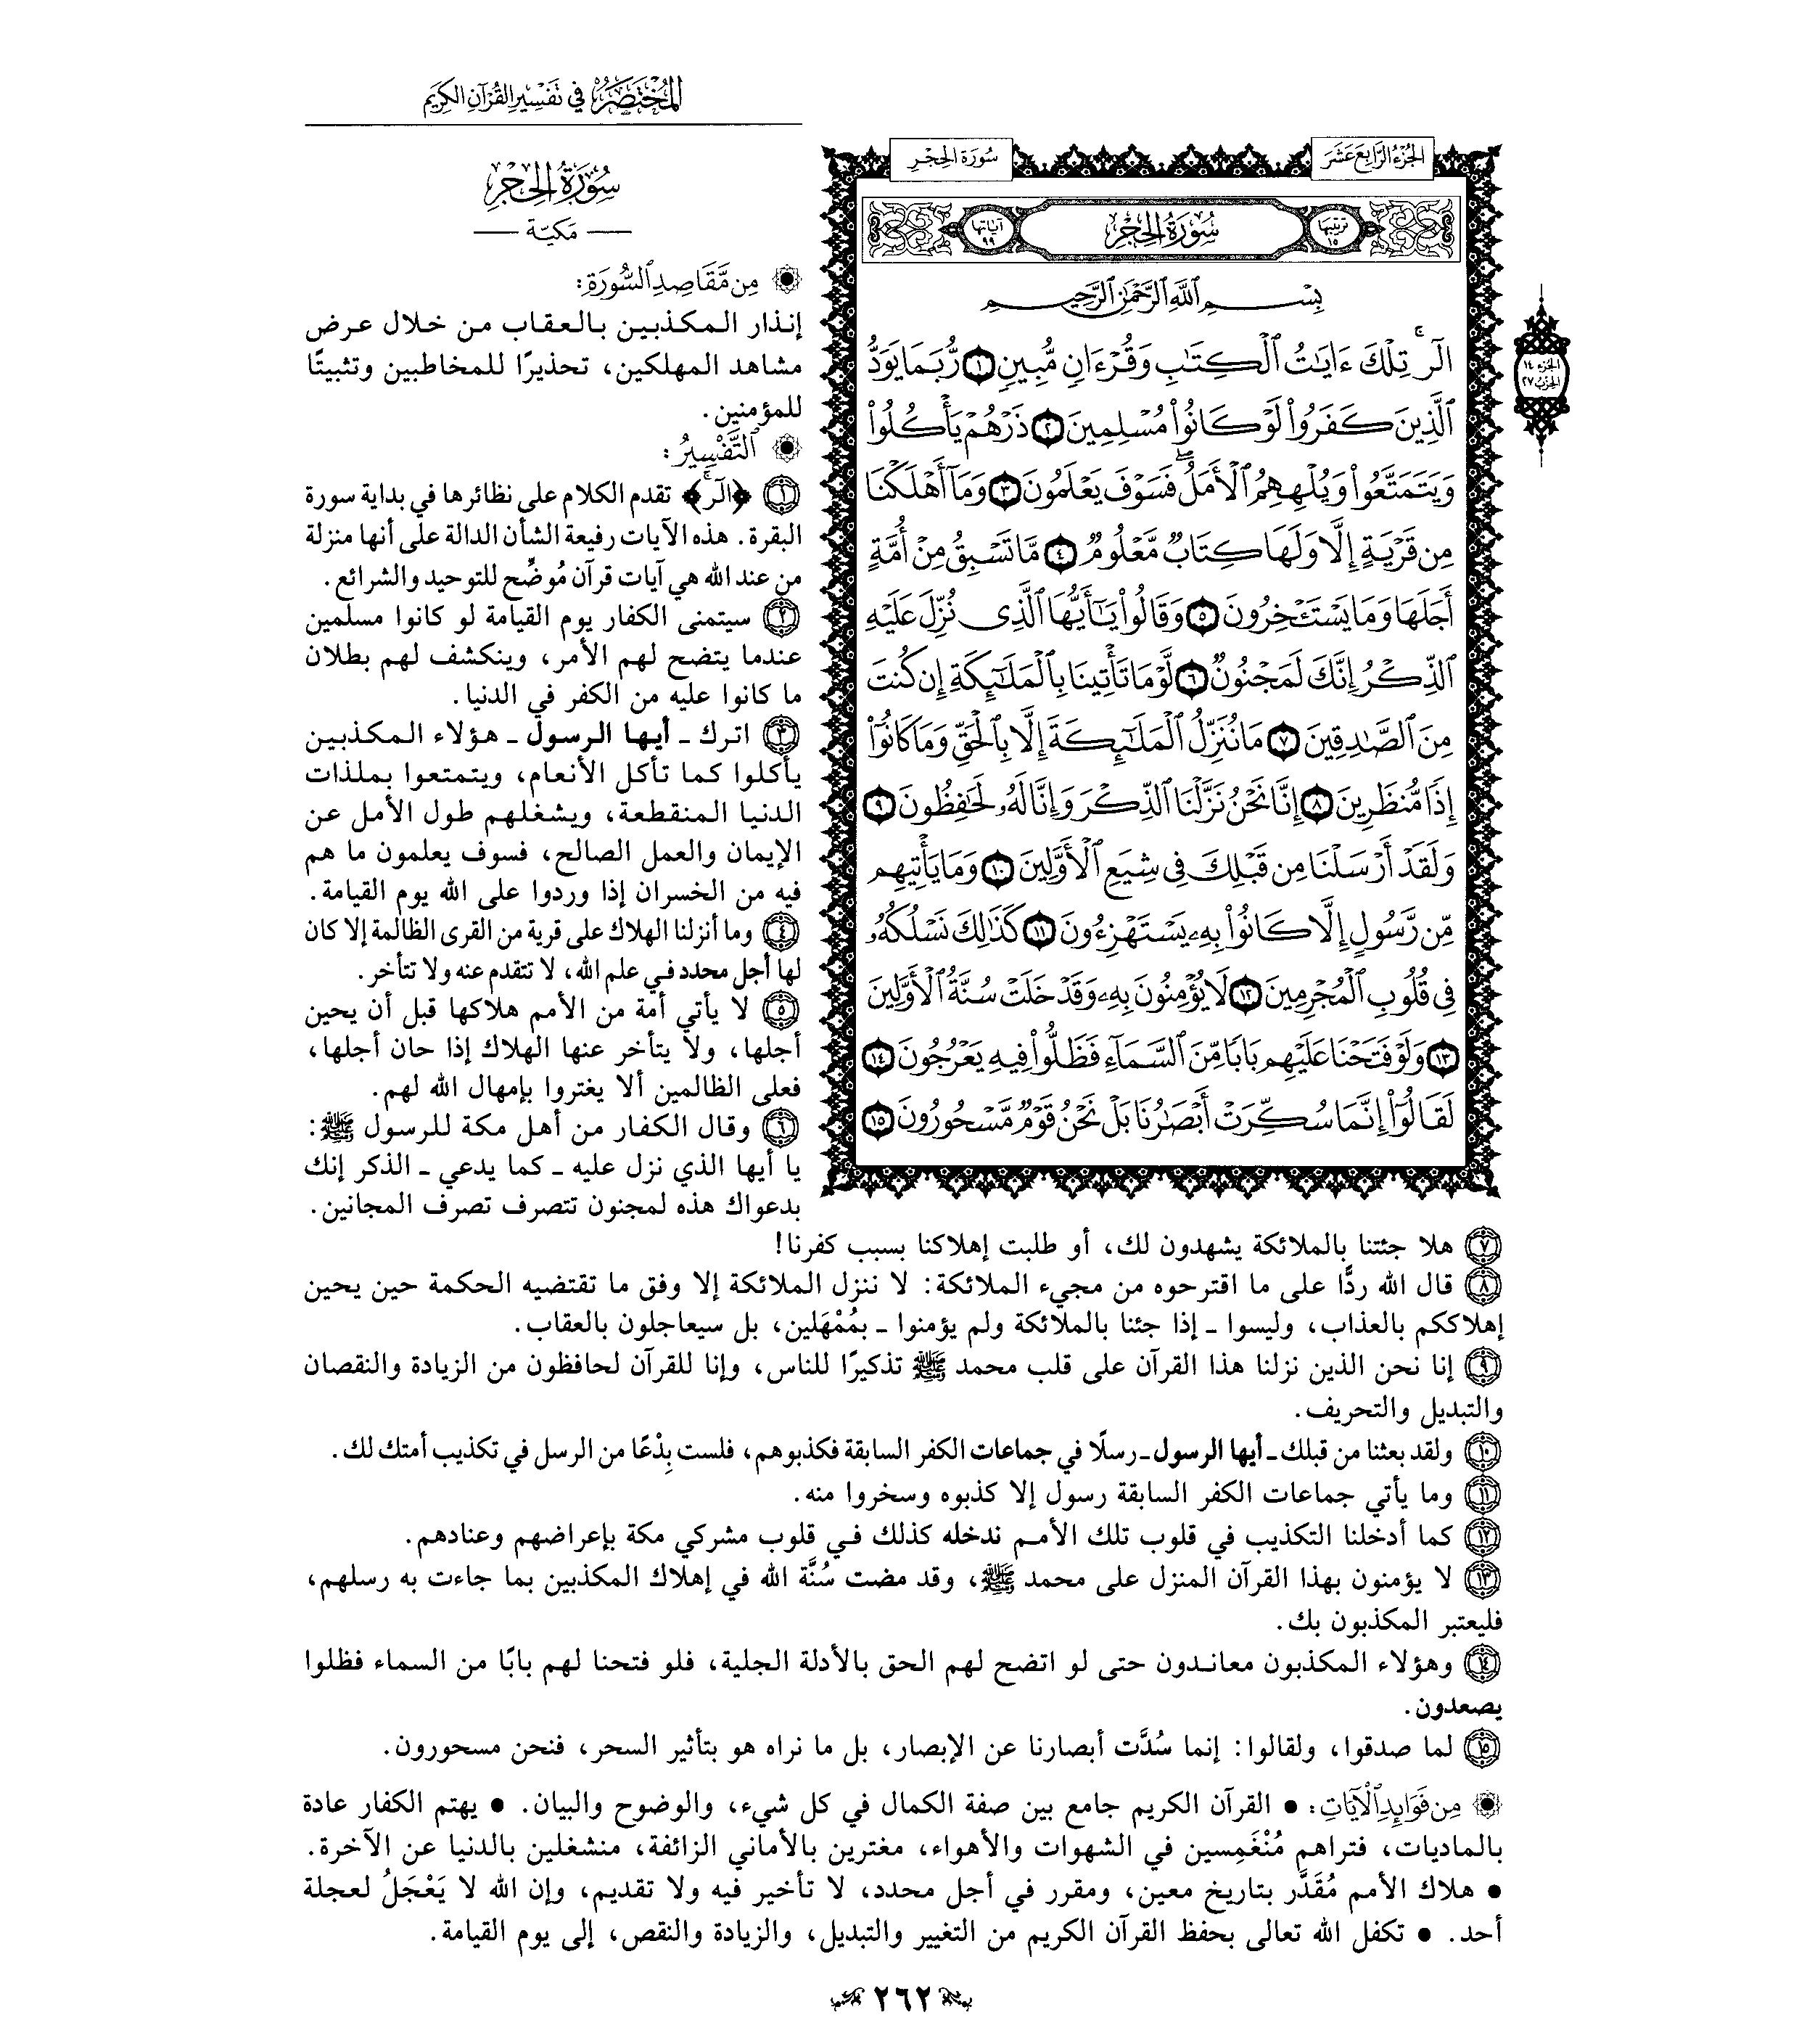 المُخْتَصَرُ في تَفْسِيرِ القُرْآنِ الكَرِيمِ
الجُزْءُ الرَّابِعَ عَشَرَ
سُورَةُ الحِجْرِ
ترتيبها ١٥
سُورَةُ الحِجْرِ
آياتها ٩٩
بِسْمِ ٱللَّهِ ٱلرَّحْمَٰنِ ٱلرَّحِيمِ
الٓرۚ تِلْكَ ءَايَٰتُ ٱلْكِتَٰبِ وَقُرْءَانٍ مُّبِينٍ ١ رُّبَمَا يَوَدُّ
ٱلَّذِينَ كَفَرُوا۟ لَوْ كَانُوا۟ مُسْلِمِينَ ٢ ذَرْهُمْ يَأْكُلُوا۟
وَيَتَمَتَّعُوا۟ وَيُلْهِهِمُ ٱلْأَمَلُۖ فَسَوْفَ يَعْلَمُونَ ٣ وَمَآ أَهْلَكْنَا
مِن قَرْيَةٍ إِلَّا وَلَهَا كِتَابٌ مَّعْلُومٌ ٤ مَّا تَسْبِقُ مِنْ أُمَّةٍ
أَجَلَهَا وَمَا يَسْتَـْٔخِرُونَ ٥ وَقَالُوا۟ يَٰٓأَيُّهَا ٱلَّذِى نُزِّلَ عَلَيْهِ
ٱلذِّكْرُ إِنَّكَ لَمَجْنُونٌ ٦ لَّوْ مَا تَأْتِينَا بِٱلْمَلَٰٓئِكَةِ إِن كُنتَ
مِنَ ٱلصَّٰدِقِينَ ٧ مَا نُنَزِّلُ ٱلْمَلَٰٓئِكَةَ إِلَّا بِٱلْحَقِّ وَمَا كَانُوٓا۟
إِذًا مُّنظَرِينَ ٨ إِنَّا نَحْنُ نَزَّلْنَا ٱلذِّكْرَ وَإِنَّا لَهُۥ لَحَٰفِظُونَ ٩
وَلَقَدْ أَرْسَلْنَا مِن قَبْلِكَ فِى شِيَعِ ٱلْأَوَّلِينَ ١٠ وَمَا يَأْتِيهِم
مِّن رَّسُولٍ إِلَّا كَانُوا۟ بِهِۦ يَسْتَهْزِءُونَ ١١ كَذَٰلِكَ نَسْلُكُهُۥ
فِى قُلُوبِ ٱلْمُجْرِمِينَ ١٢ لَا يُؤْمِنُونَ بِهِۦ وَقَدْ خَلَتْ سُنَّةُ ٱلْأَوَّلِينَ
١٣ وَلَوْ فَتَحْنَا عَلَيْهِم بَابًا مِّنَ ٱلسَّمَآءِ فَظَلُّوا۟ فِيهِ يَعْرُجُونَ ١٤
لَقَالُوٓا۟ إِنَّمَا سُكِّرَتْ أَبْصَٰرُنَا بَلْ نَحْنُ قَوْمٌ مَّسْحُورُونَ ١٥
الجزء ١٤
الحزب ٢٧
سُورَةُ الحِجْرِ
— مَكيّة —
مِن مَّقَاصِدِ ٱلسُّورَةِ:
إنذار المكذبين بالعقاب من خلال عرض
مشاهد المهلكين، تحذيرًا للمخاطبين وتثبيتًا
للمؤمنين.
ٱلتَّفْسِيرُ:
١ ﴿الٓرۚ﴾ تقدم الكلام على نظائرها في بداية سورة
البقرة. هذه الآيات رفيعة الشأن الدالة على أنها منزلة
من عند الله هي آيات قرآن مُوضِّح للتوحيد والشرائع.
٢ سيتمنى الكفار يوم القيامة لو كانوا مسلمين
عندما يتضح لهم الأمر، وينكشف لهم بطلان
ما كانوا عليه من الكفر في الدنيا.
٣ اترك ـ أيها الرسول ـ هؤلاء المكذبين
يأكلوا كما تأكل الأنعام، ويتمتعوا بملذات
الدنيا المنقطعة، ويشغلهم طول الأمل عن
الإيمان والعمل الصالح، فسوف يعلمون ما هم
فيه من الخسران إذا وردوا على الله يوم القيامة.
٤ وما أنزلنا الهلاك على قرية من القرى الظالمة إلا كان
لها أجل محدد في علم الله، لا تتقدم عنه ولا تتأخر.
٥ لا يأتي أمة من الأمم هلاكها قبل أن يحين
أجلها، ولا يتأخر عنها الهلاك إذا حان أجلها،
فعلى الظالمين ألا يغتروا بإمهال الله لهم.
٦ وقال الكفار من أهل مكة للرسول ﷺ:
يا أيها الذي نزل عليه ـ كما يدعي ـ الذكر إنك
بدعواك هذه لمجنون تتصرف تصرف المجانين.
٧ هلا جئتنا بالملائكة يشهدون لك، أو طلبت إهلاكنا بسبب كفرنا!
٨ قال الله ردًّا على ما اقترحوه من مجيء الملائكة: لا ننزل الملائكة إلا وفق ما تقتضيه الحكمة حين يحين
إهلاككم بالعذاب، وليسوا ـ إذا جئنا بالملائكة ولم يؤمنوا ـ بمُمْهَلين، بل سيعاجلون بالعقاب.
٩ إنا نحن الذين نزلنا هذا القرآن على قلب محمد ﷺ تذكيرًا للناس، وإنا للقرآن لحافظون من الزيادة والنقصان
والتبديل والتحريف.
١٠ ولقد بعثنا من قبلك ـ أيها الرسول ـ رسلًا في جماعات الكفر السابقة فكذبوهم، فلست بِدْعًا من الرسل في تكذيب أمتك لك.
١١ وما يأتي جماعات الكفر السابقة رسول إلا كذبوه وسخروا منه.
١٢ كما أدخلنا التكذيب في قلوب تلك الأمم ندخله كذلك في قلوب مشركي مكة بإعراضهم وعنادهم.
١٣ لا يؤمنون بهذا القرآن المنزل على محمد ﷺ، وقد مضت سُنَّة الله في إهلاك المكذبين بما جاءت به رسلهم،
فليعتبر المكذبون بك.
١٤ وهؤلاء المكذبون معاندون حتى لو اتضح لهم الحق بالأدلة الجلية، فلو فتحنا لهم بابًا من السماء فظلوا
يصعدون.
١٥ لما صدقوا، ولقالوا: إنما سُدَّت أبصارنا عن الإبصار، بل ما نراه هو بتأثير السحر، فنحن مسحورون.
مِن فَوَائِدِ ٱلْآيَاتِ: • القرآن الكريم جامع بين صفة الكمال في كل شيء، والوضوح والبيان. • يهتم الكفار عادة
بالماديات، فتراهم مُنْغَمِسين في الشهوات والأهواء، مغترين بالأماني الزائفة، منشغلين بالدنيا عن الآخرة.
• هلاك الأمم مُقَدَّر بتاريخ معين، ومقرر في أجل محدد، لا تأخير فيه ولا تقديم، وإن الله لا يَعْجَلُ لعجلة
أحد. • تكفل الله تعالى بحفظ القرآن الكريم من التغيير والتبديل، والزيادة والنقص، إلى يوم القيامة.
٢٦٢